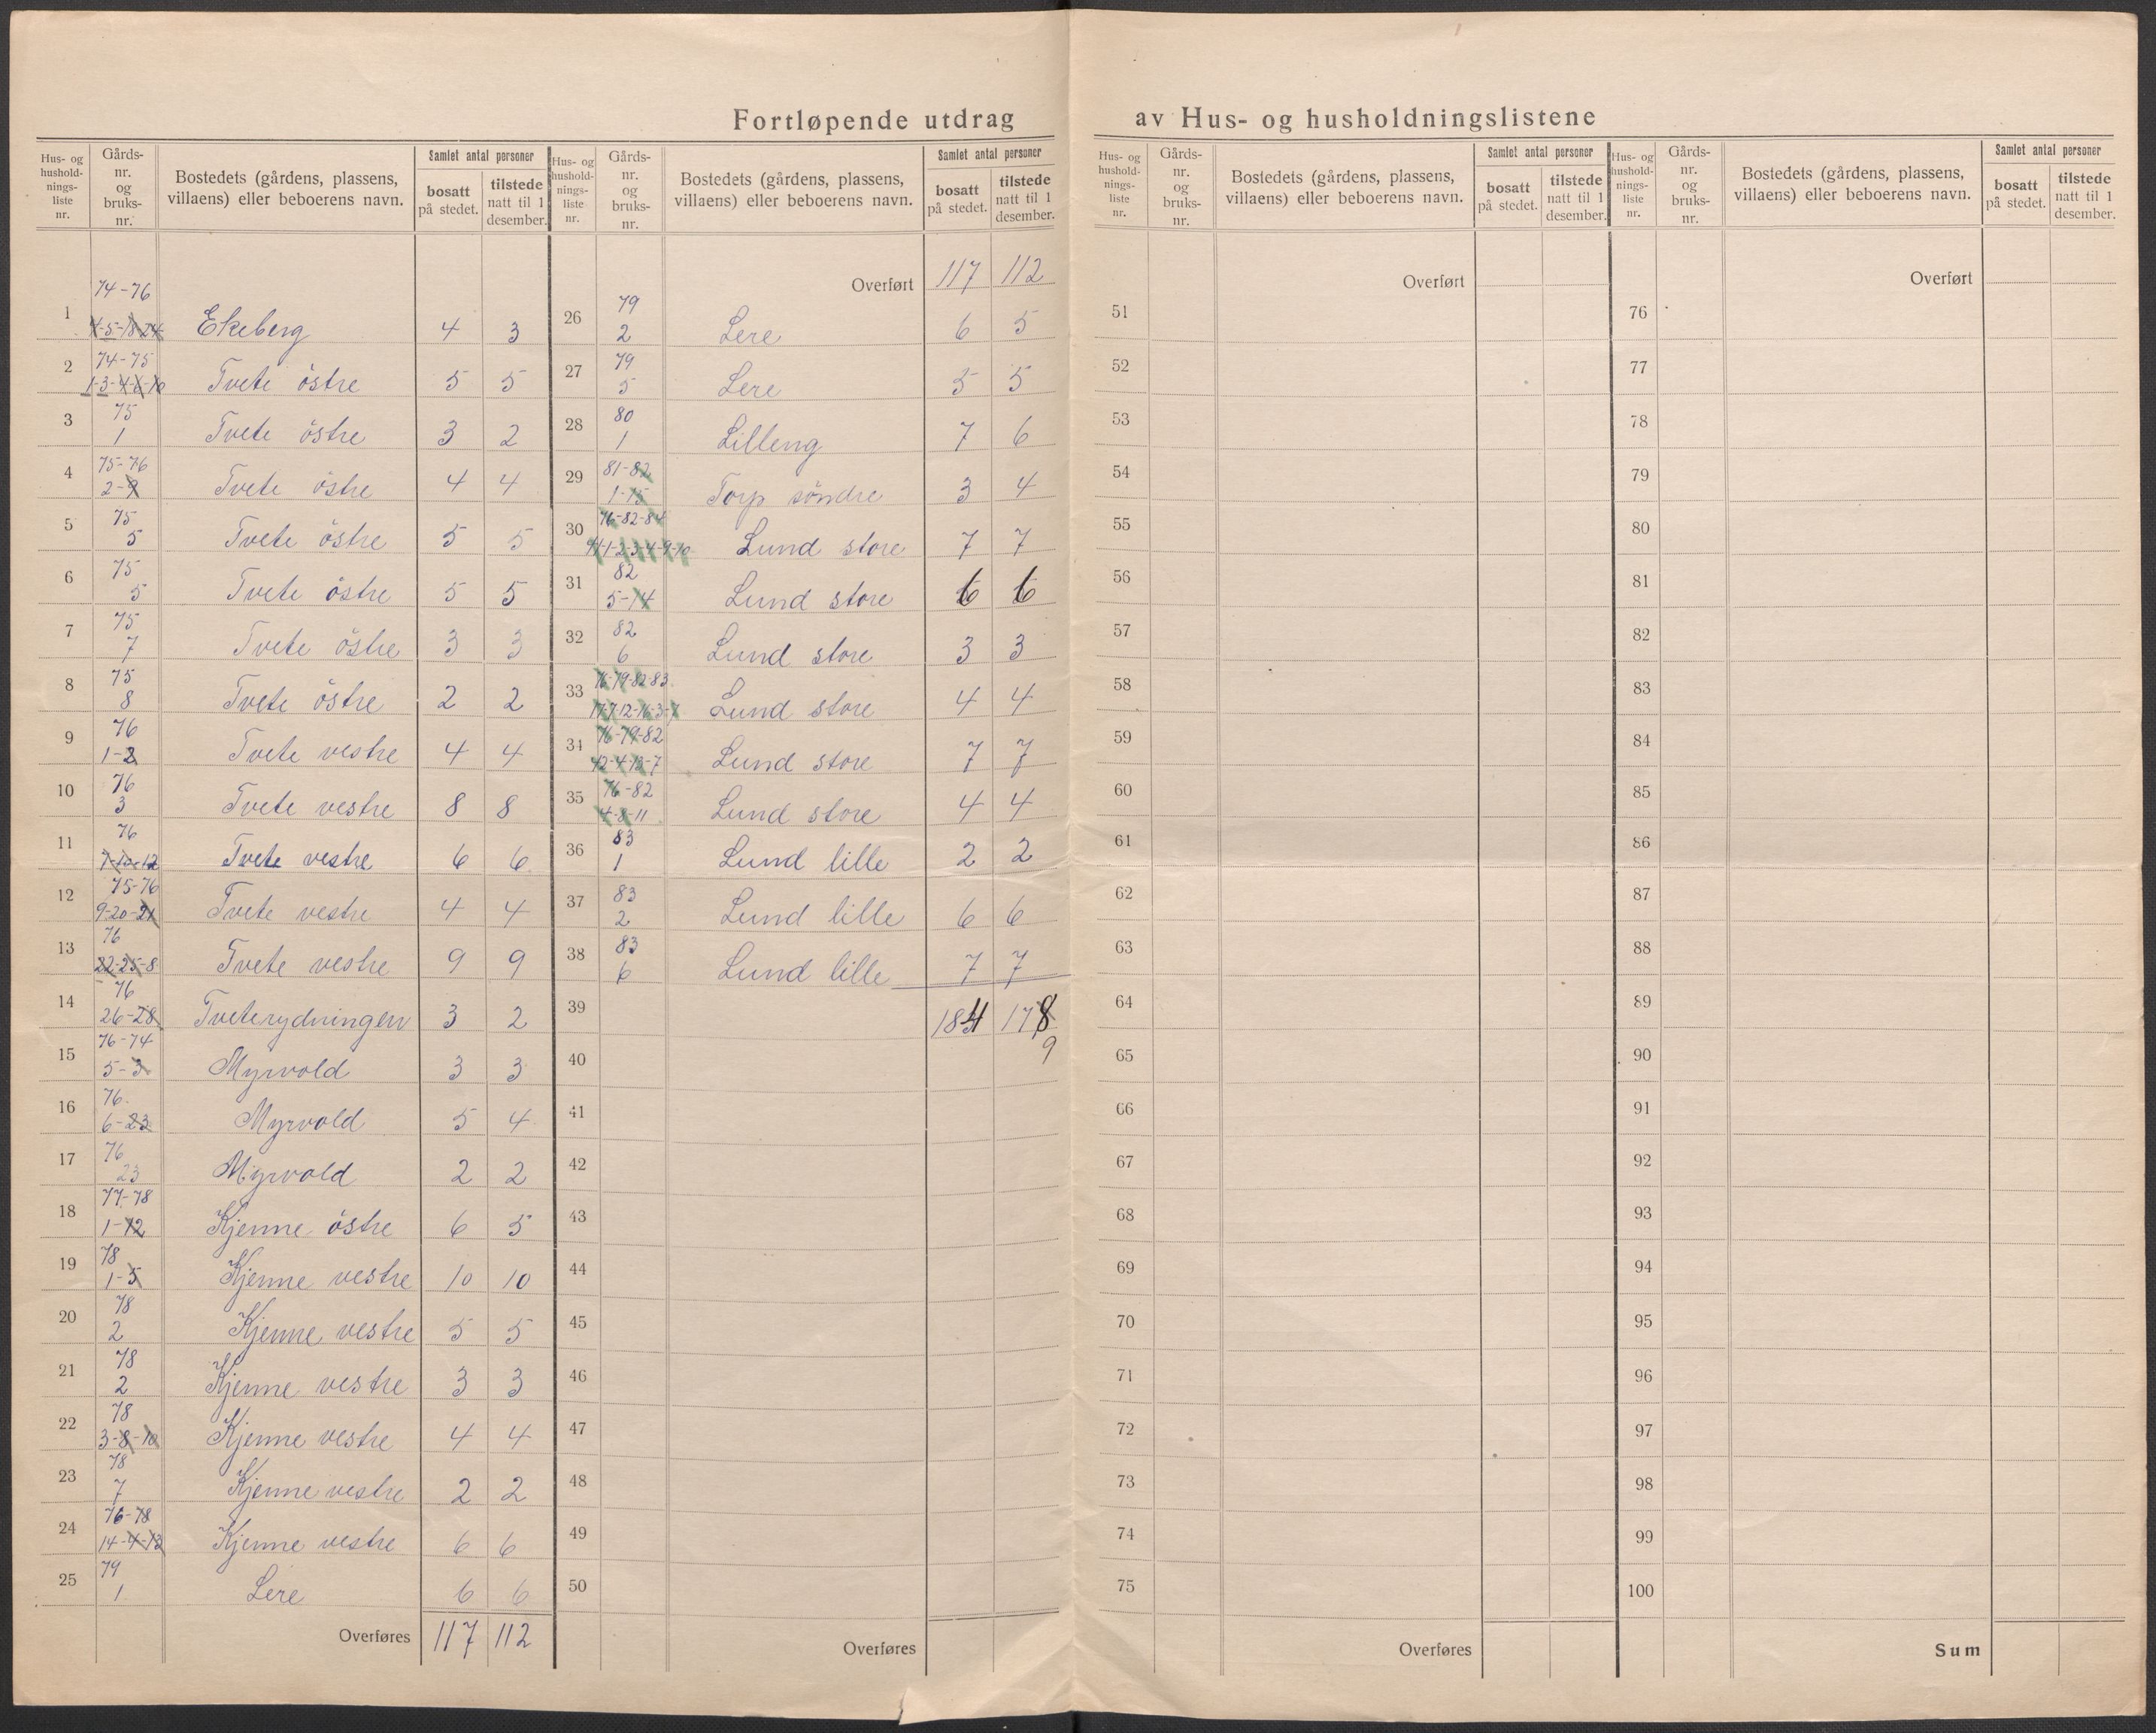 Fortløpende utdrag av Hus- og husholdningslistene
Hus- og husholdnings- liste nr. | Gårds- nr. og bruks- nr. | Bostedets (gårdens, plassens, villaens) eller beboerens navn. | Samlet antal personer bosatt på stedet. | tilstede natt til 1 desember.
1 | 74-76 4-5-18-24 | Ekeberg | 4 | 3
2 | 74-75 1-3-4-6-10 | Tvete östre | 5 | 5
3 | 75 1 | Tvete östre | 3 | 2
4 | 75-76 2-9 | Tvete östre | 4 | 4
5 | 75 5 | Tvete östre | 5 | 5
6 | 75 5 | Tvete östre | 5 | 5
7 | 75 7 | Tvete östre | 3 | 3
8 | 75 8 | Tvete östre | 2 | 2
9 | 76 1-2 | Tvete vestre | 4 | 4
10 | 76 3 | Tvete vestre | 8 | 8
11 | 76 7-10-12 | Tvete vestre | 6 | 6
12 | 75-76 9-20-21 | Tvete vestre | 4 | 4
13 | 76 22-25-8 | Tvete vestre | 9 | 9
14 | 76 26-28 | Tveterydningen | 3 | 2
15 | 76-74 5-3 | Myrvold | 3 | 3
16 | 76. 6-23 | Myrvold | 5 | 4
17 | 76 23 | Myrvold | 2 | 2
18 | 77-78 1-12 | Kjenne östre | 6 | 5
19 | 78 1-5 | Kjenne vestre | 10 | 10
20 | 78 2 | Kjenne vestre | 5 | 5
21 | 78 2 | Kjenne vestre | 3 | 3
22 | 78 3-8-10 | Kjenne vestre | 4 | 4
23 | 78 7 | Kjenne vestre | 2 | 2
24 | 76-78 14-4-13 | Kjenne vestre | 6 | 6
25 | 79 1 | Lere | 6 | 6
Overføres | 117 | 112
Hus- og husholdnings- liste nr. | Gårds- nr. og bruks- nr. | Bostedets (gårdens, plassens, villaens) eller beboerens navn. | Samlet antal personer bosatt på stedet. | tilstede natt til 1 desember.
Overført | 117 | 112
26 | 79 2 | Lere | 6 | 5
27 | 79 5 | Lere | 5 | 5
28 | 80 1 | Lilleng | 7 | 6
29 | 81-82 1-15 | Torp söndre | 3 | 4
30 | 76-82-84 1-2-3-4-9-10 | Lund store | 7 | 7
31 | 82 5-14 | Lund store | 6 | 6
32 | 82 6 | Lund store | 3 | 3
33 | 76-79-82-83 | Lund store | 4 | 4
34 | 76-79-82 | Lund store | 7 | 7
35 | 76-82 4-8-11 | Lund store | 4 | 4
36 | 83 1 | Lund lille | 2 | 2
37 | 83 2 | Lund lille | 6 | 6
38 | 83 6 | Lund lille | 7 | 7
39 | 184 | 178
9
40
41
42
43
44
45
46
47
48
49
50
Overføres
Hus- og husholdnings- liste nr. | Gårds- nr. og bruks- nr. | Bostedets (gårdens, plassens, villaens) eller beboerens navn. | Samlet antal personer bosatt på stedet. | tilstede natt til 1 desember.
Overført
51
52
53
54
55
56
57
58
59
60
61
62
63
64
65
66
67
68
69
70
71
72
73
74
75
Overføres
Hus- og husholdnings- liste nr. | Gårds- nr. og bruks- nr. | Bostedets (gårdens, plassens, villaens) eller beboerens navn. | Samlet antal personer bosatt på stedet. | tilstede natt til 1 desember.
Overført
76
77
78
79
80
81
82
83
84
85
86
87
88
89
90
91
92
93
94
95
96
97
98
99
100
Sum